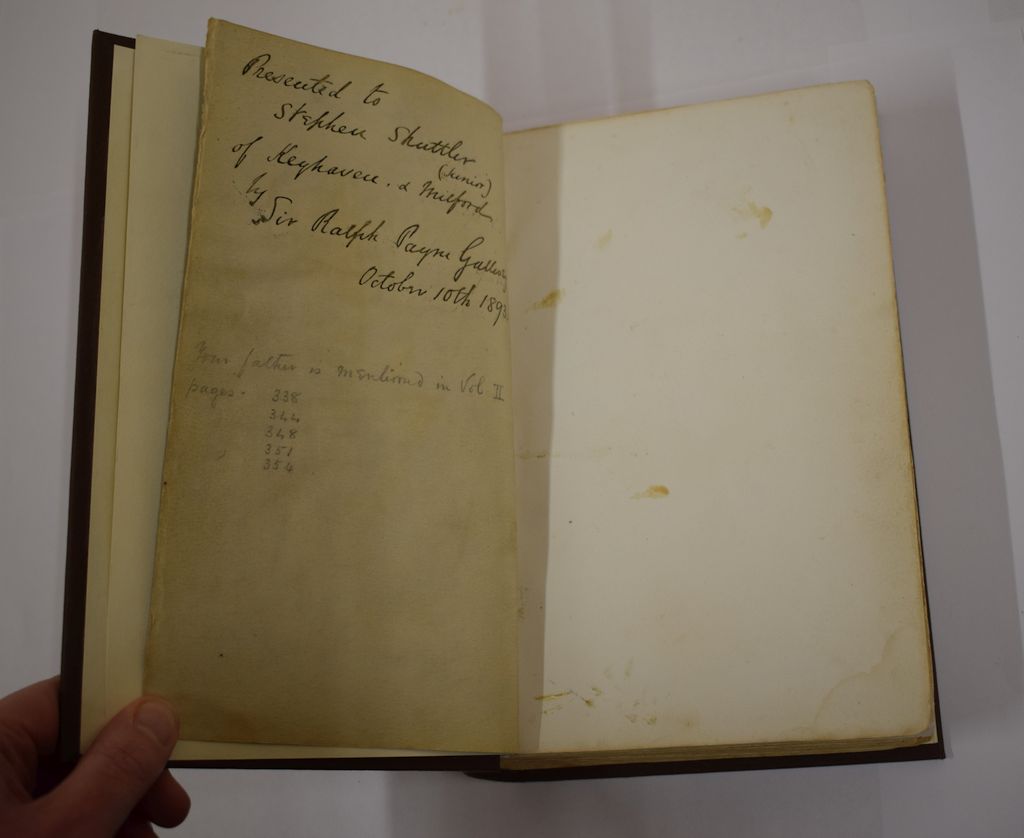 Presented to
Stephen Shuttler
(Junior)
of Keyhaven. & Milford
by
Sir Ralph Payne Gallwey
October 10th 1893
Your father is mentioned in Vol II
pages. 338
344
348
351
354